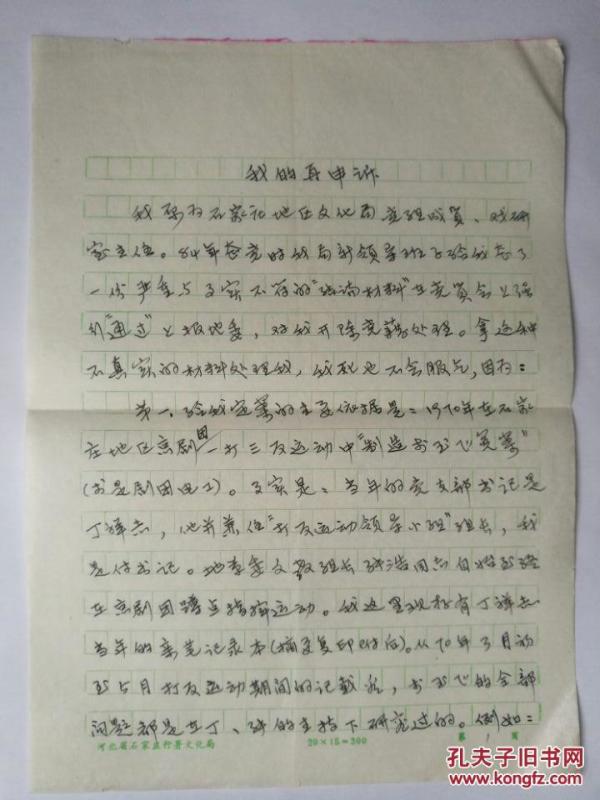 我的再申诉
我原为石家庄地区文化局党组成员、戏研
室主任。84年整党时我局新领导班子给我整了
一份严重与事实不符的"结论材料"在党员会上强
行"通过"上报地委,对我开除党籍处理。拿这种
不真实的材料处理我,我死也不会服气,因为:
第一、给我定案的主要依据是:1970年在石家
庄地区京剧团一打三反运动中"制造书飞冤案"
(书是剧团电工)。事实是:当年的党支部书记是
丁祥志,他并兼任"打反运动领导小组"组长,我
是付书记。地革委文教组长张浩同志自始至终
在京剧团蹲点指挥运动。我这里现存有丁祥志
当年的亲笔记录本(摘要复印附后)。从70年3月初
至5月打反运动期间的记载看,书飞的全部
问题都是在丁、张的主持下研究过的。例如:
河北省石家庄行署文化局
20×15=300
第1页
孔夫子旧书网
www.kongfz.com